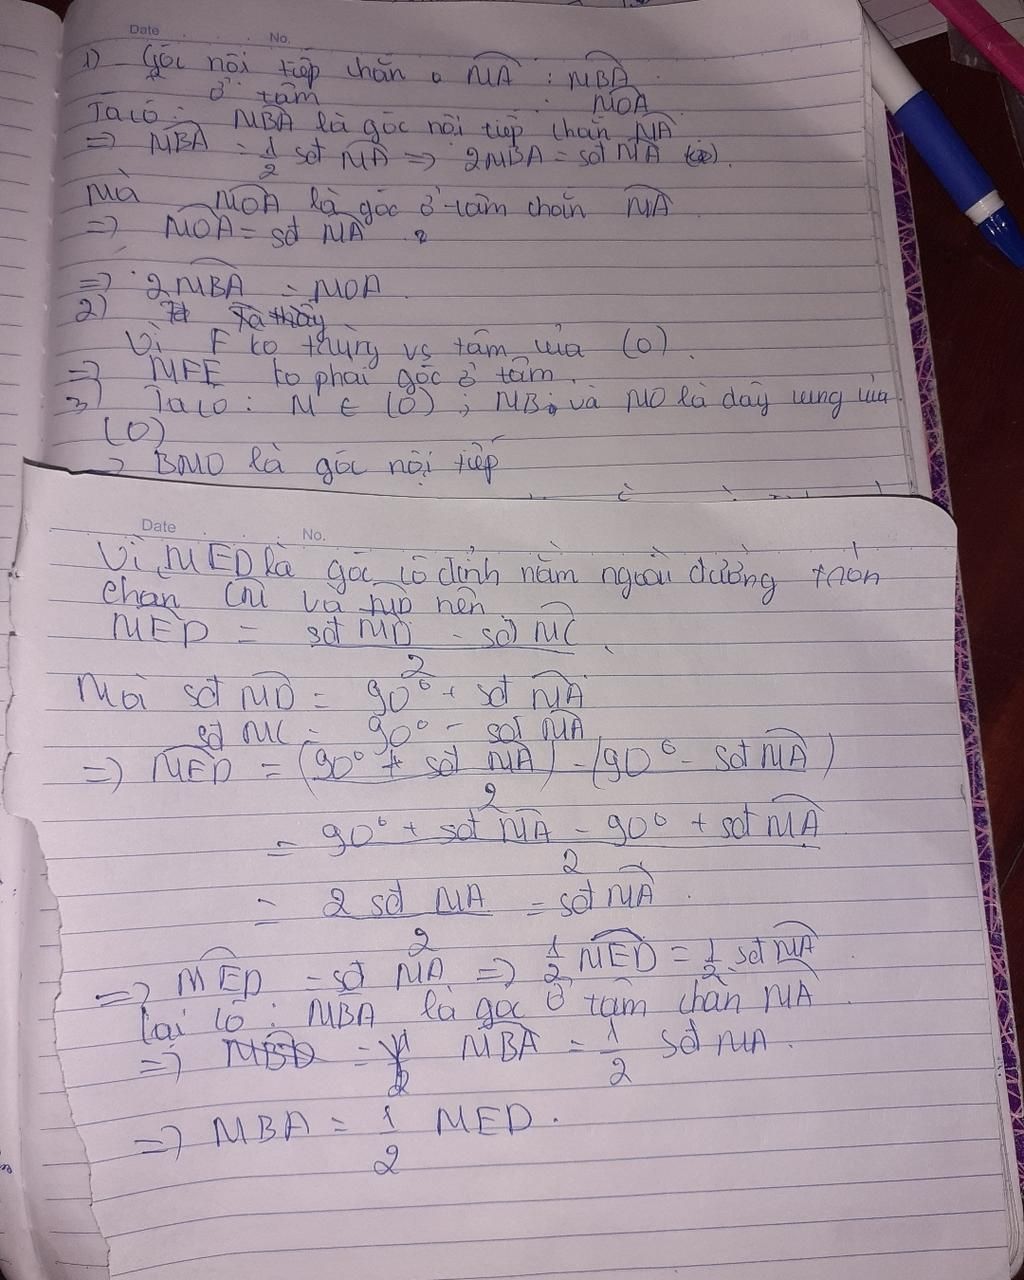 Date No.
1) Góc nội tiếp chắn MA : MBA
ở tâm MOA
Ta có : MBA là góc nội tiếp chắn MA
=> MBA = 1/2 sđ MA => 2MBA = sđ MA
Mà MOA là góc ở tâm chắn MA
=> MOA = sđ MA
=> 2MBA = MOA
2) Ta thấy
Vì F ko trùng vs tâm của (O).
=> MFE ko phải góc ở tâm.
3) Ta có : M ∈ (O) ; MB và MO là dây cung của
(O)
=> BMO là góc nội tiếp
Date No.
Vì MED là góc có đỉnh nằm ngoài đường tròn
chắn CM và MD nên
MED = sđ MD - sđ MC
2
Mà sđ MD = 90° + sđ MA
sđ MC = 90° - sđ MA
=> MED = (90° + sđ MA) - (90° - sđ MA)
2
= 90° + sđ MA - 90° + sđ MA
2
= 2 sđ MA = sđ MA.
2
=> MED = sđ MA => 1/2 MED = 1/2 sđ MA
Lại có : MBA là góc ở tâm chắn MA
=> MBA = 1/2 sđ MA.
=> MBA = 1/2 MED.